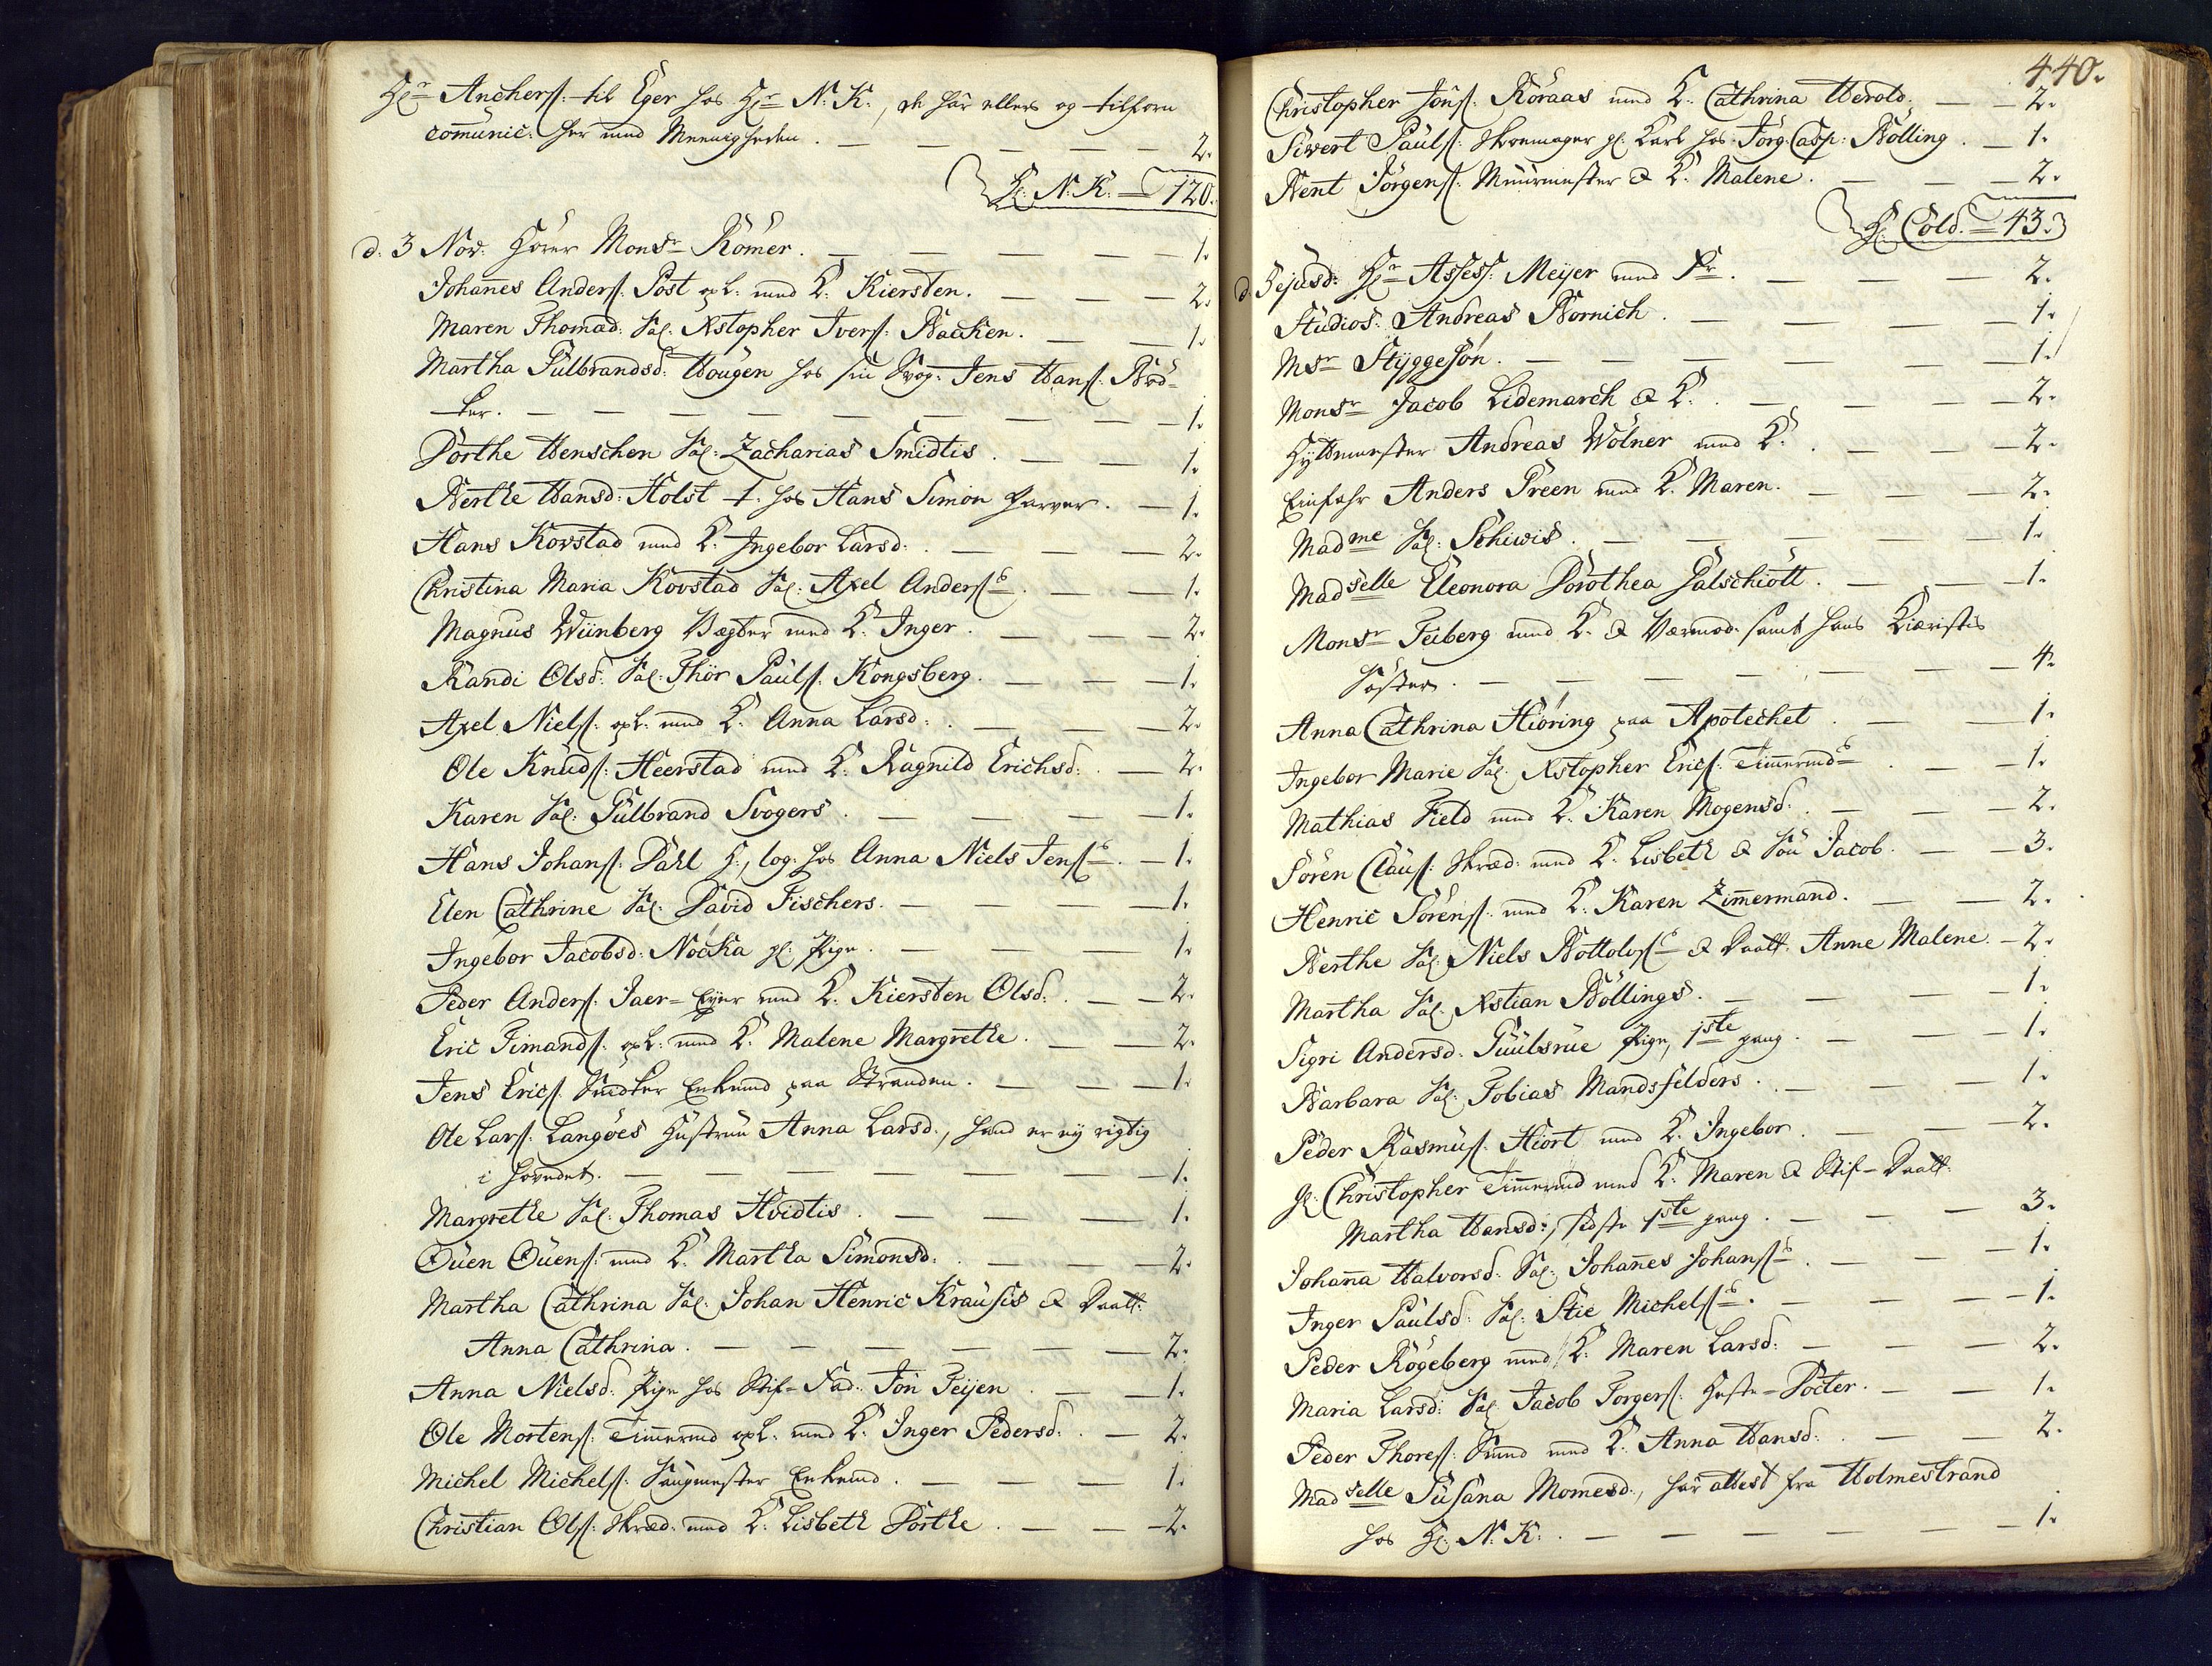 Hr Anchers: til Eger hos Hr N: K:, de har ellers og tilforn
comunic: her med Meenigheden. 2.
H: N: K: = 120.
d. 3 Nov: Hører Monsr Römer. 1.
Johanes Anders: Post opL: med K: Kiersten. 2.
Maren Thomæd: Sal: Xstopher Ivers: Backen. 1.
Martha Gulbrandsd: Hougen hos sin Svog: Jens Hans: Bød-
ker. 1.
Dorthe Henschen Sal: Zacharias Smidtis. 1.
Berthe Hansd: Holst t: hos Hans Simon farver. 1.
Hans Kovstad med K: Ingebor Larsd: 2.
Christina Maria Kovstad Sal: Axel Anders: 1.
Magnus Wiinberg Vægter med K: Inger. 2.
Randi Olsd: Sal: Thor Pauls: Kongsberg. 1.
Axel Niels: opL: med K: Anna Larsd: 2.
Ole Knuds: Heerstad med K: Ragnild Erichsd: 2.
Karen Sal: Gulbrand Svogers. 1.
Hans Johans: Dahl H:, log: hos Anna Niels Jens: 1.
Elen Cathrine Sal: David Fischers. 1.
Ingebor Jacobsd: Nocka gl: Pige. 1.
Peder Anders: Jaer-Eyer med K: Kiersten Olsd: 2.
Eric Simands: opL: med K: Malene Margrethe. 2.
Jens Erics: Snedker Enkemd paa Stranden. 1.
Ole Lars: Langöes Hustrue Anna Larsd:, hand er ey rigtig
i hovedet. 1.
Margrethe Sal: Thomas Hvidtis. 1.
Ouen Ouens: med K: Martha Simonsd: 2.
Martha Cathrina Sal: Johan Henric Krausis & Daatt:
Anna Cathrina. 2.
Anna Nielsd: Pige hos Stif-Fad: Jon Teijen. 1.
Ole Mortens: Timermd opL: med K: Inger Pedersd: 2.
Michel Michels: Saugmester Enkemd. 1.
Christian Ols: Skræd: med K: Lisbeth Dorthe. 2.
440.
Christopher Jons: Röraas med K: Cathrina Herold. 2.
Siwert Pauls: Skoemager gl: Karl hos Jörg: Casp: Bölling. 1.
Bent Jörgens: Muurmester & K: Malene. 2.
H: Cold. = 43.
d. 3 ejusd: Hr Assess: Meyer med Fr. 2.
Studios: Andreas Bornich. 1.
Msr Styggesön. 1.
Monsr Jacob Lidemarch & K: 2.
Hyttemester Andreas Wölner med K: 2.
Einfahr Anders Preen med K: Maren. 2.
Madme Sal: Schiwis. 1.
Madselle Eleonora Dorothea Palschiött. 1.
Monsr Feiberg med K: & Værmod: samt hans Kiæristis
Söster. 4.
Anna Cathrina Hiöring paa Apotechet. 1.
Ingebor Marie Sal: Xstopher Erics: Timermds 1.
Mathias Field med K: Karen Mogensd: 2.
Sören Claus: Skræd: med K: Lisbeth & Sön Jacob. 3.
Henric Sörens: med K: Karen Zimermand. 2.
Berthe Sal: Niels Bottolvs: & Daatt: Anne Malene. 2.
Martha Sal: Xstian Böllings. 1.
Sigri Andersd: Guulsrue Pige, 1ste gang. 1.
Barbara Sal: Tobias Mandsfelders. 1.
Peder Rasmus: Hiort med K: Ingebor. 2.
gl: Christopher Timermd med K: Maren & Stif-Daatt:
Martha Hansd:, sidste 1ste gang. 3.
Johana Halvorsd: Sal: Johanes Johans: 1.
Inger Paulsd: Sal: Stie Michels: 1.
Peder Rögeberg med K: Maren Larsd: 2.
Maria Larsd: Sal: Jacob Torgers: Heste-Docter. 1.
Peder Thores: Smed med K: Anna Hansd: 2.
Madselle Susana Momesd:, har attest fra Holmestrand
hos H: N: K: 1.